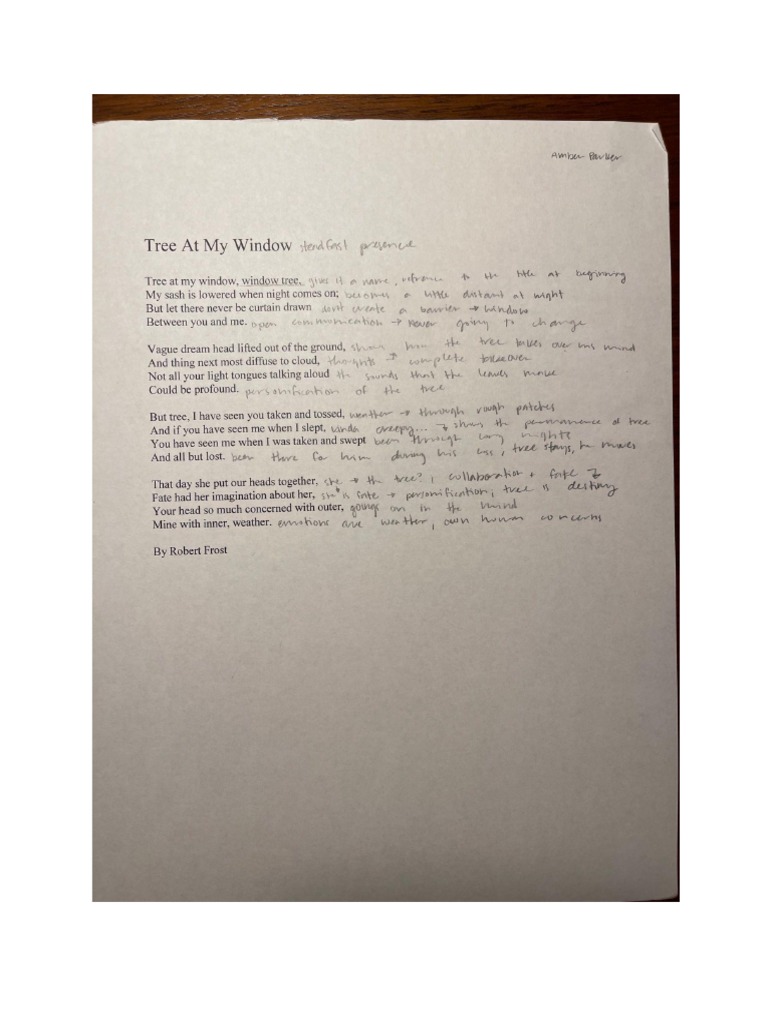 Amber Barker
Tree At My Window stendfast presence
Tree at my window, window tree, give it a name, refrence to the title at beginning
My sash is lowered when night comes on; becomes a little distant at night
But let there never be curtain drawn dont create a barrier → window
Between you and me. open communication → never going to change
Vague dream head lifted out of the ground, shows how the tree takes over his mind
And thing next most diffuse to cloud, thoughts → complete takeover
Not all your light tongues talking aloud the sounds that the leaves make
Could be profound. personification of the tree
But tree, I have seen you taken and tossed, weather → through rough patches
And if you have seen me when I slept, kinda creepy... → shows the permanence of tree
You have seen me when I was taken and swept been through long nights
And all but lost. been there for him during his loss, tree stays, he moves
That day she put our heads together, she → the tree?, collaboration + fate →
Fate had her imagination about her, she is fate → personification, tree is destiny
Your head so much concerned with outer, goings on in the wind
Mine with inner, weather. emotions are weather, own human concerns
By Robert Frost